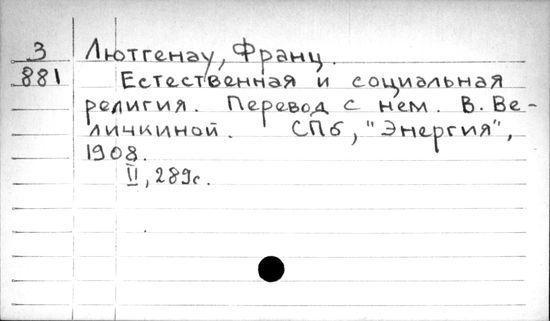 З Лютгенау, Франц.
881 Естественная и социальная
религия. Перевод с нем. В. Ве-
личкиной. СПб, "Энергия",
1908.
II, 289с.